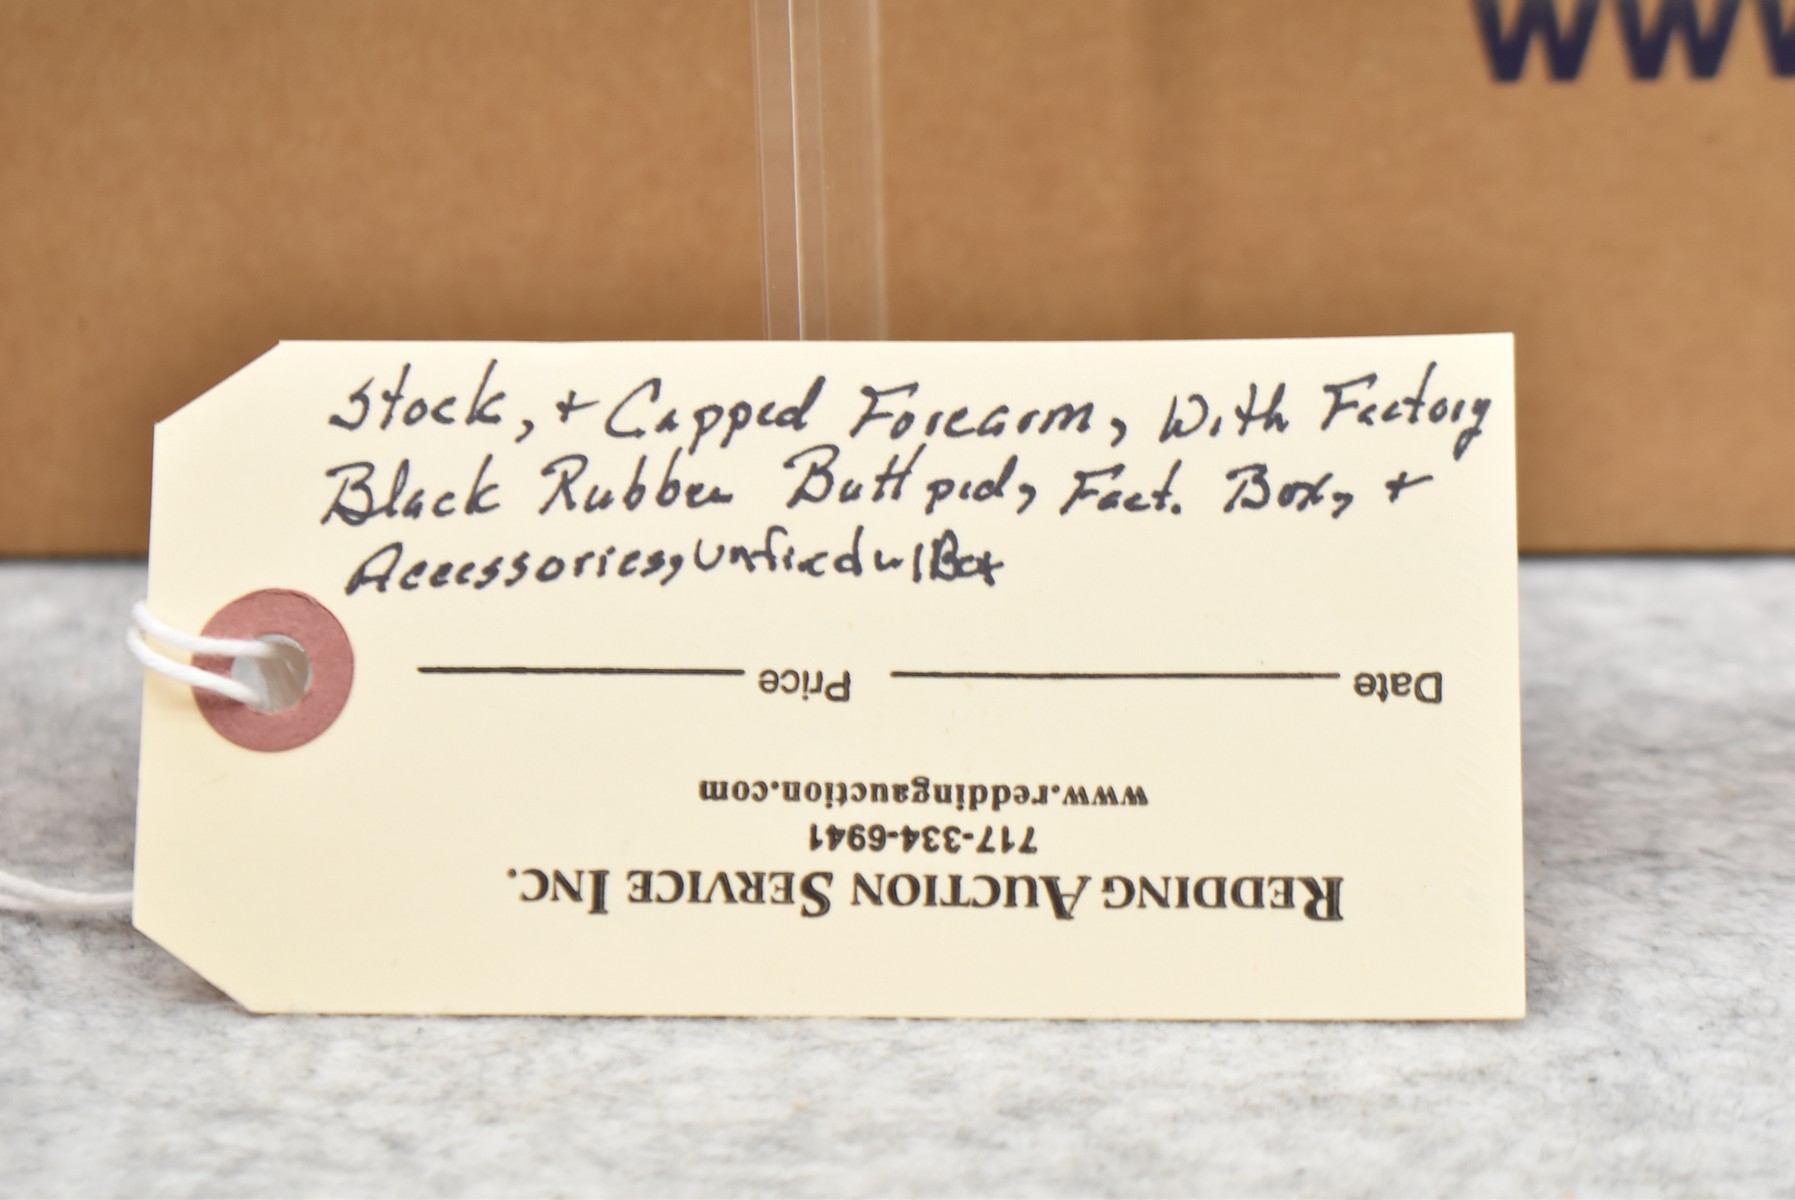 WWW
Stock, + Capped Forearm, With Factory
Black Rubber Butt pad, Fact. Box, +
Accessories, Unfired w/Box
Date Price
www.reddingauction.com
717-334-6941
REDDING AUCTION SERVICE INC.